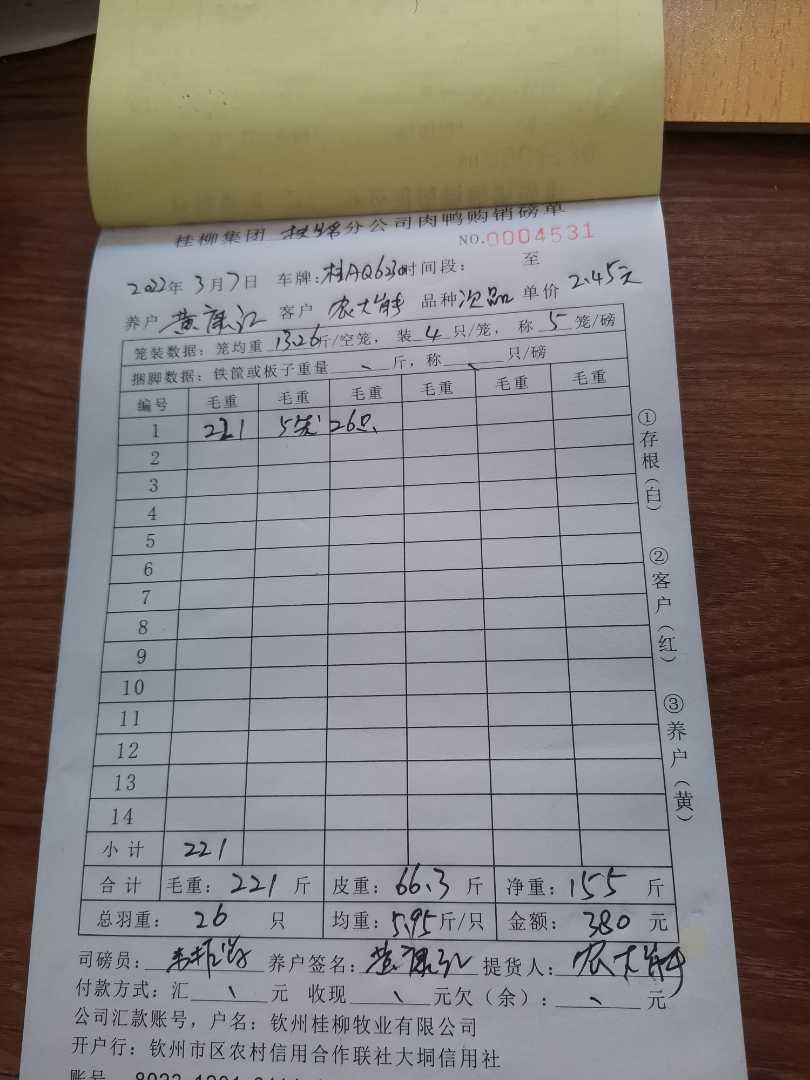 桂柳集团 分公司肉鸭购销磅单
NO.0004531
2022年3月7日 车牌:桂AQ6230时间段: 至
养户 黄康江 客户 农大 品种次品 单价2.45元
笼装数据:笼均重 13.26斤/空笼,装 4 只/笼,称 5 笼/磅
捆脚数据:铁筐或板子重量 、 斤,称 、 只/磅
编号 毛重 毛重 毛重 毛重 毛重 毛重
1 221 5笼 26只
2
3
4
5
6
7
8
9
10
11
12
13
14
小计 221
合计 毛重:221 斤 皮重:66.3 斤 净重:155 斤
总羽重: 26 只 均重:5.95斤/只 金额:380 元
司磅员: 养户签名:黄康江 提货人:农大
付款方式:汇 、 元 收现 、 元欠(余): 、 元
公司汇款账号,户名:钦州桂柳牧业有限公司
开户行:钦州市区农村信用合作联社大垌信用社
账号
①存根(白)
②客户(红)
③养户(黄)